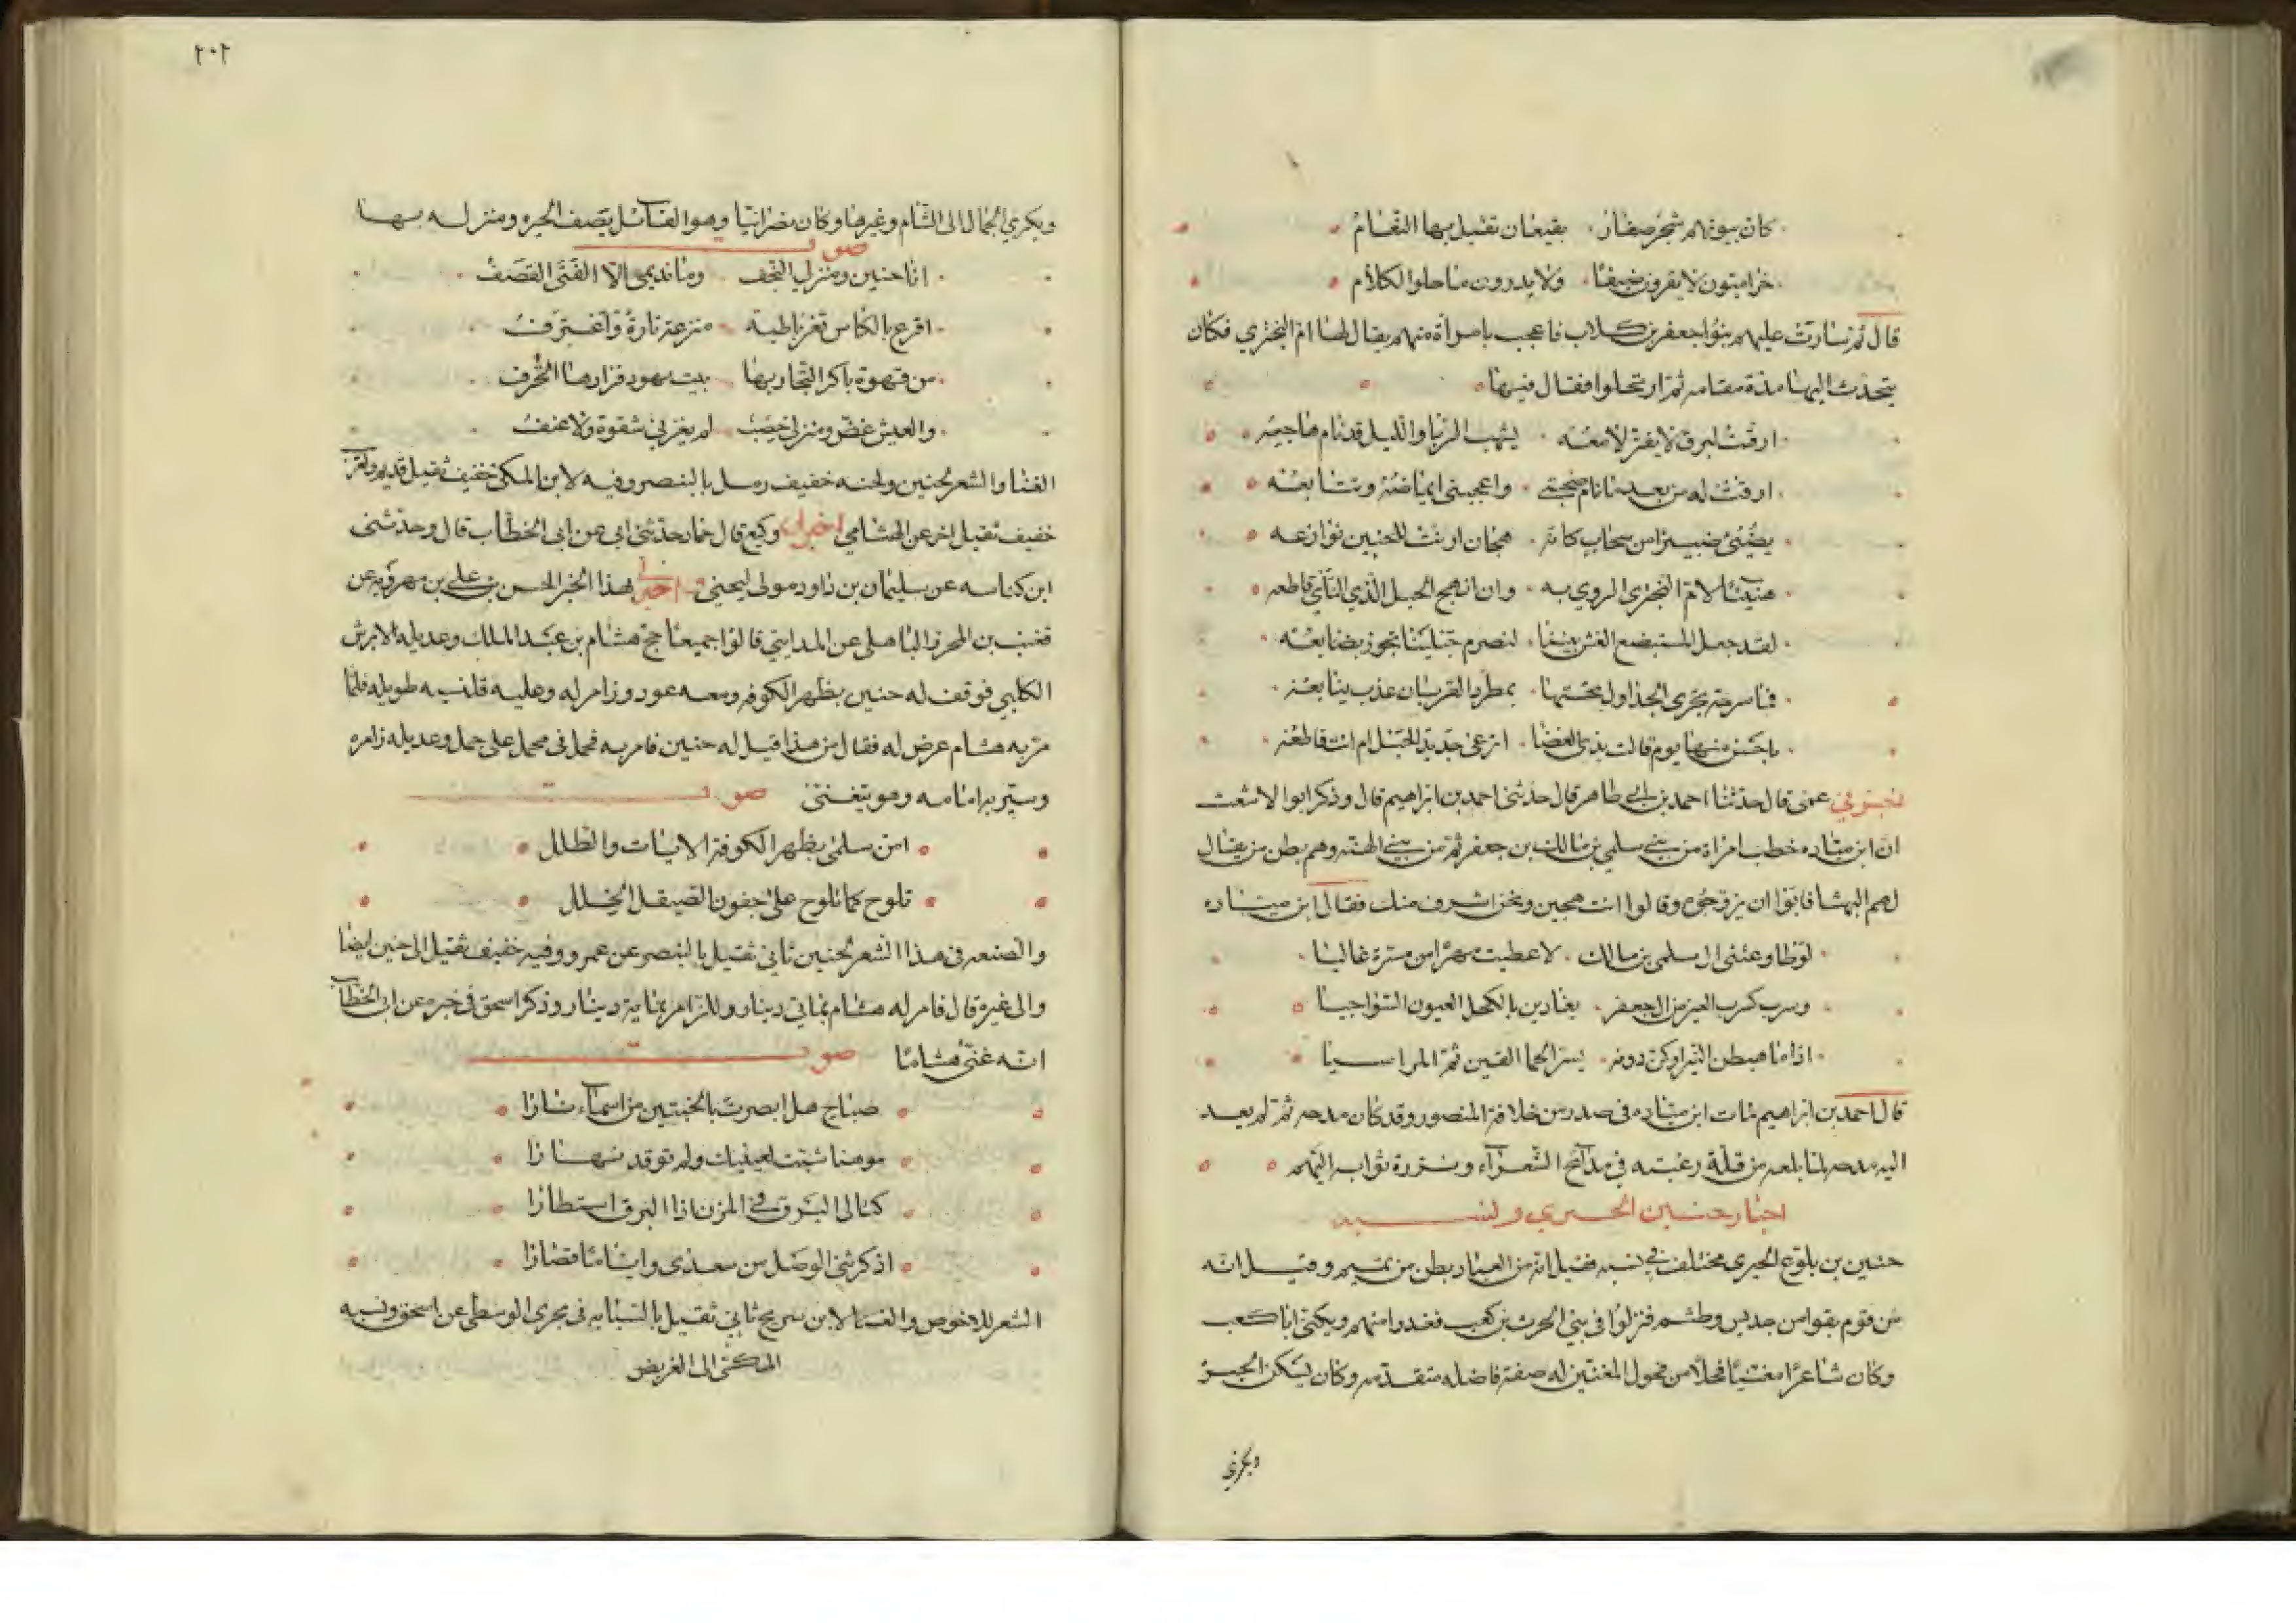 كان بيوتهم شجر صغار بقيعان تقيل بها النعام
حراميون لا يقرون ضيفا ولا يدرون ما حلوا الكلام
قال ثم سارت عليهم بنوا جعفر بن كلاب فاعجب بامرأة منهم يقال لها ام البختري فكان
يتحدث اليها مدة مقامه ثم ارتحلوا فقال فيها
ارقت لبرق لا يفتر لامعه بشهب الربا والليل قد نام هاجعه
ارقت له من بعد ما نام صحبتي واعجبني ايماضه وتتابعه
يضيئ صبيرا من سحاب كانه هجان ارنت للحنين نوازعه
هنيئا لام البختري الروي به وان انهج الحبل الذي النأي قاطعه
لقد جعل المستبضع الغش بيننا ليصرم حبلينا تجوز بضايعه
فما سرحة تجرى الجداول تحتها بمطرد القريان عذب ينابعه
باحسن منها يوم قالت بذي الغضا اترعى جديد الحبل ام انت قاطعه
اخبرني عمى قال حدثنا احمد بن ابي طاهر قال حدثنى احمد بن ابراهيم قال وذكر ابوا الاشعث
ان ابن مياده خطب امراة من بني سلمي بن مالك بن جعفر ثم من بني البهثه وهم بطن من يقال
لهم البهثا فابوا ان يزوجوه وقالوا انت هجين ونحن اشرف منك فقال ابن مياده
لو طاوعتنى ال سلمى بن مالك لاعطيت مهرا من مسرة غاليا
وسرب كسرب العين من ال جعفر يغادين بالكحل العيون السواجيا
اذا ما هبطن النير او كن دونه بسر الحما القين ثم المراسيا
قال احمد بن ابراهيم مات ابن مياده في صدر من خلافة المنصور وقد كان مدحه ثم لم يعد
اليه مدحه لما بلغه من قلة رغبته في مدائح الشعراء ونزرة ثوابه اليهم
اخبار حنين الحيري ونسبه
حنين بن بلوع الحيري مختلف في نسبه فقيل انه من العباد بطن من تميم وقيل انه
من قوم بقوا من جديس وطسم فنزلوا في بني الحرث بن كعب فعدوا منهم ويكنى ابا كعب
وكان شاعرا مغنيا فحلا من فحول المغنين له صنعة فاضله متقدمه وكان يسكن الحيرة
ويكري
٢٠٢
ويكري الجمال الى الشام وغيرها وكان نصرانيا وهو القائل يصف الحيره ومنزله بها
صوت
انا حنين ومنزلي النجف وما نديمي الا الفتى القصف
اقرع بالكاس ثغر باطية مترعة تارة واغترف
من قهوة باكر التجار بها بيت يهود قرارها الخزف
والعيش غض ومنزلي خصب لم يغزني شقوة ولا عنف
الغنا والشعر لحنين ولحنه خفيف رمل بالبنصر وفيه لابن المكي خفيف ثقيل قديم ولعريب
خفيف ثقيل اخر عن الهشامي اخبرنا وكيع قال حماد حدثنى ابي عن ابى الخطاب قال وحدثنى
ابن كناسه عن سليمان بن داود مولى ليحيى واخبرنا بهذا الخبر الحسن بن علي بن مهرويه عن
قعنب بن المحرز الباهلي عن المدايني قالوا جميعا حج هشام بن عبد الملك وعديله الابرش
الكلبي فوقف له حنين بظهر الكوفه ومعه عود وزامر له وعليه قلنسيه طويله فلما
مر به هشام عرض له فقال من هذا قيل له حنين فامر به فحمل في محمل على جمل وعديله زامره
وسير به امامه وهو يتغنى صوت
امن سلمى بظهر الكوفة الايات والطلل
تلوح كما تلوح على جفون الصيقل الخلل
والصنعه في هذا الشعر لحنين ثاني ثقيل بالبنصر عن عمرو وفيه خفيف ثقيل الى حنين ايضا
والى غيره قال فامر له هشام بمائتي دينار وللزامر بماية دينار وذكر اسحق في خبره عن ابي الخطاب
انه غنى هشاما صوت
صاح هل ابصرت بالخبتين من اسماء نارا
موهنا شبت لعينيك ولم توقد نهارا
كتالى البرق في المزن اذا البرق استطارا
اذكرتني الوصل من سعدى واياما قصارا
الشعر للاحوص والغنا لابن سريج ثاني ثقيل بالسبابه في مجرى الوسطى عن اسحق ونسبه
المكى الى الغريض